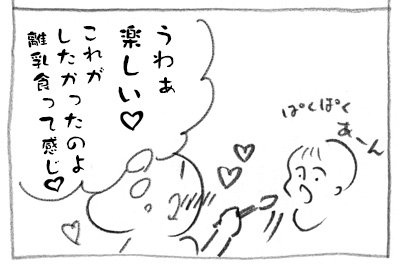 うわぁ
楽しい♡
これが
したかったのよ
離乳食って感じ♡
ぱくぱく
あーん